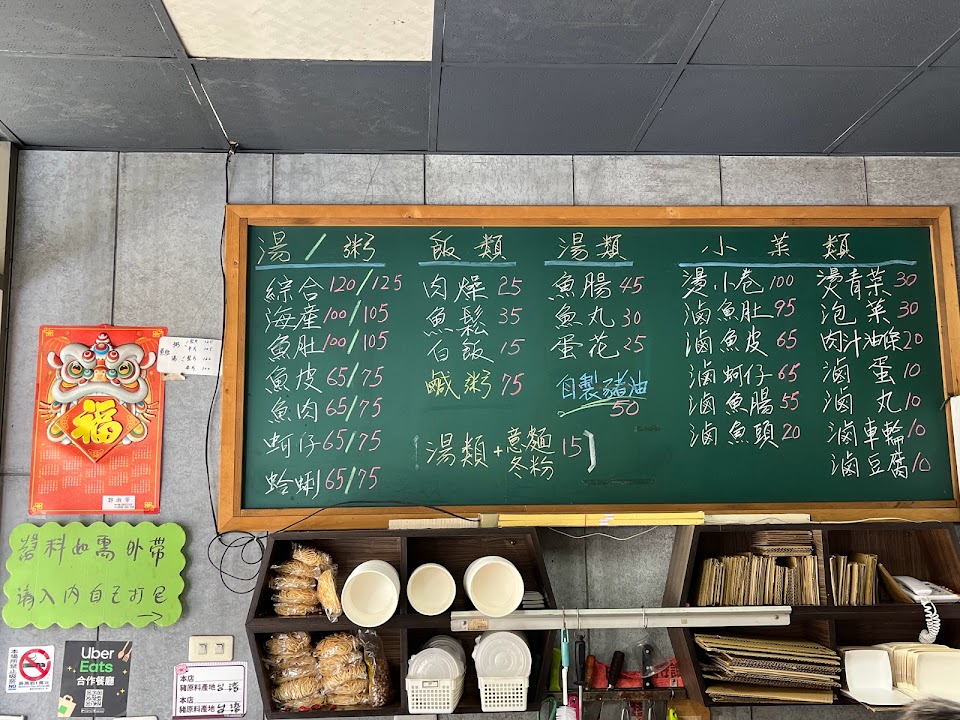 湯/粥
綜合120/125
海產100/105
魚肚100/105
魚皮65/75
魚肉65/75
蚵仔65/75
蛤蜊65/75
飯類
肉燥25
魚鬆35
白飯15
鹹粥75
湯類
魚腸45
魚丸30
蛋花25
自製豬油
50
湯類+意麵 冬粉 15
小菜類
燙小卷100
滷魚肚95
滷魚皮65
滷蚵仔65
滷魚腸55
滷魚頭20
燙青菜30
泡菜30
肉汁油條20
滷蛋10
滷丸10
滷車輪10
滷豆腐10
福
醬料如需外帶
請入內自己打包
Uber
Eats
合作餐廳
本店
豬原料產地台灣
本店
豬原料產地台灣